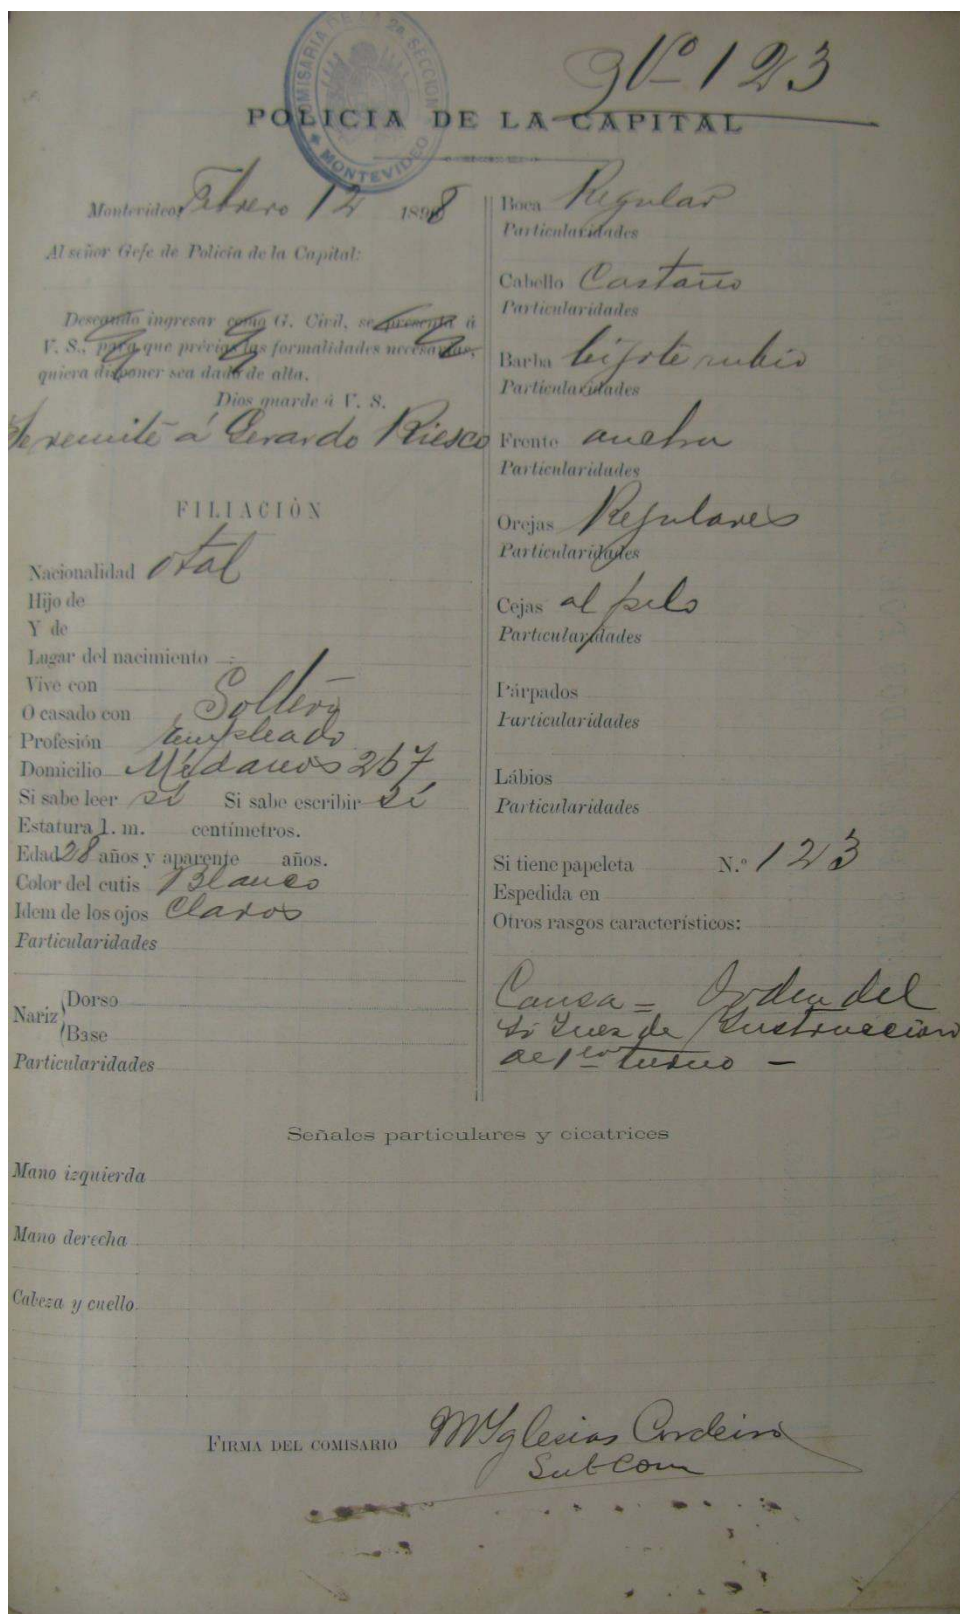 COMISARIA DE LA 2a. SECCION
MONTEVIDEO
Nº 123
POLICIA DE LA CAPITAL
Montevideo, Febrero 12 1898
Al señor Gefe de Policía de la Capital:
Deseando ingresar como G. Civil, se presenta á
V. S., para que prévias las formalidades necesarias,
quiera disponer sea dado de alta.
Dios guarde á V. S.
Se remite á Gerardo Riesco
FILIACIÓN
Nacionalidad Otal
Hijo de
Y de
Lugar del nacimiento
Vive con
O casado con Soltero
Profesión Empleado
Domicilio Médanos 267
Si sabe leer sí Si sabe escribir sí
Estatura 1. m. centímetros.
Edad 28 años y aparente años.
Color del cutis Blanco
Idem de los ojos Claros
Particularidades
Nariz
Dorso
Base
Particularidades
Boca Regular
Particularidades
Cabello Castaño
Particularidades
Barba bigote rubio
Particularidades
Frente ancha
Particularidades
Orejas Regulares
Particularidades
Cejas al pelo
Particularidades
Párpados
Particularidades
Lábios
Particularidades
Si tiene papeleta N.º 123
Espedida en
Otros rasgos característicos:
Causa = Orden del
Sr Juez de Instruccion
de 1er turno —
Señales particulares y cicatrices
Mano izquierda
Mano derecha
Cabeza y cuello
FIRMA DEL COMISARIO M Yglesias Cordeiro
Sub Com